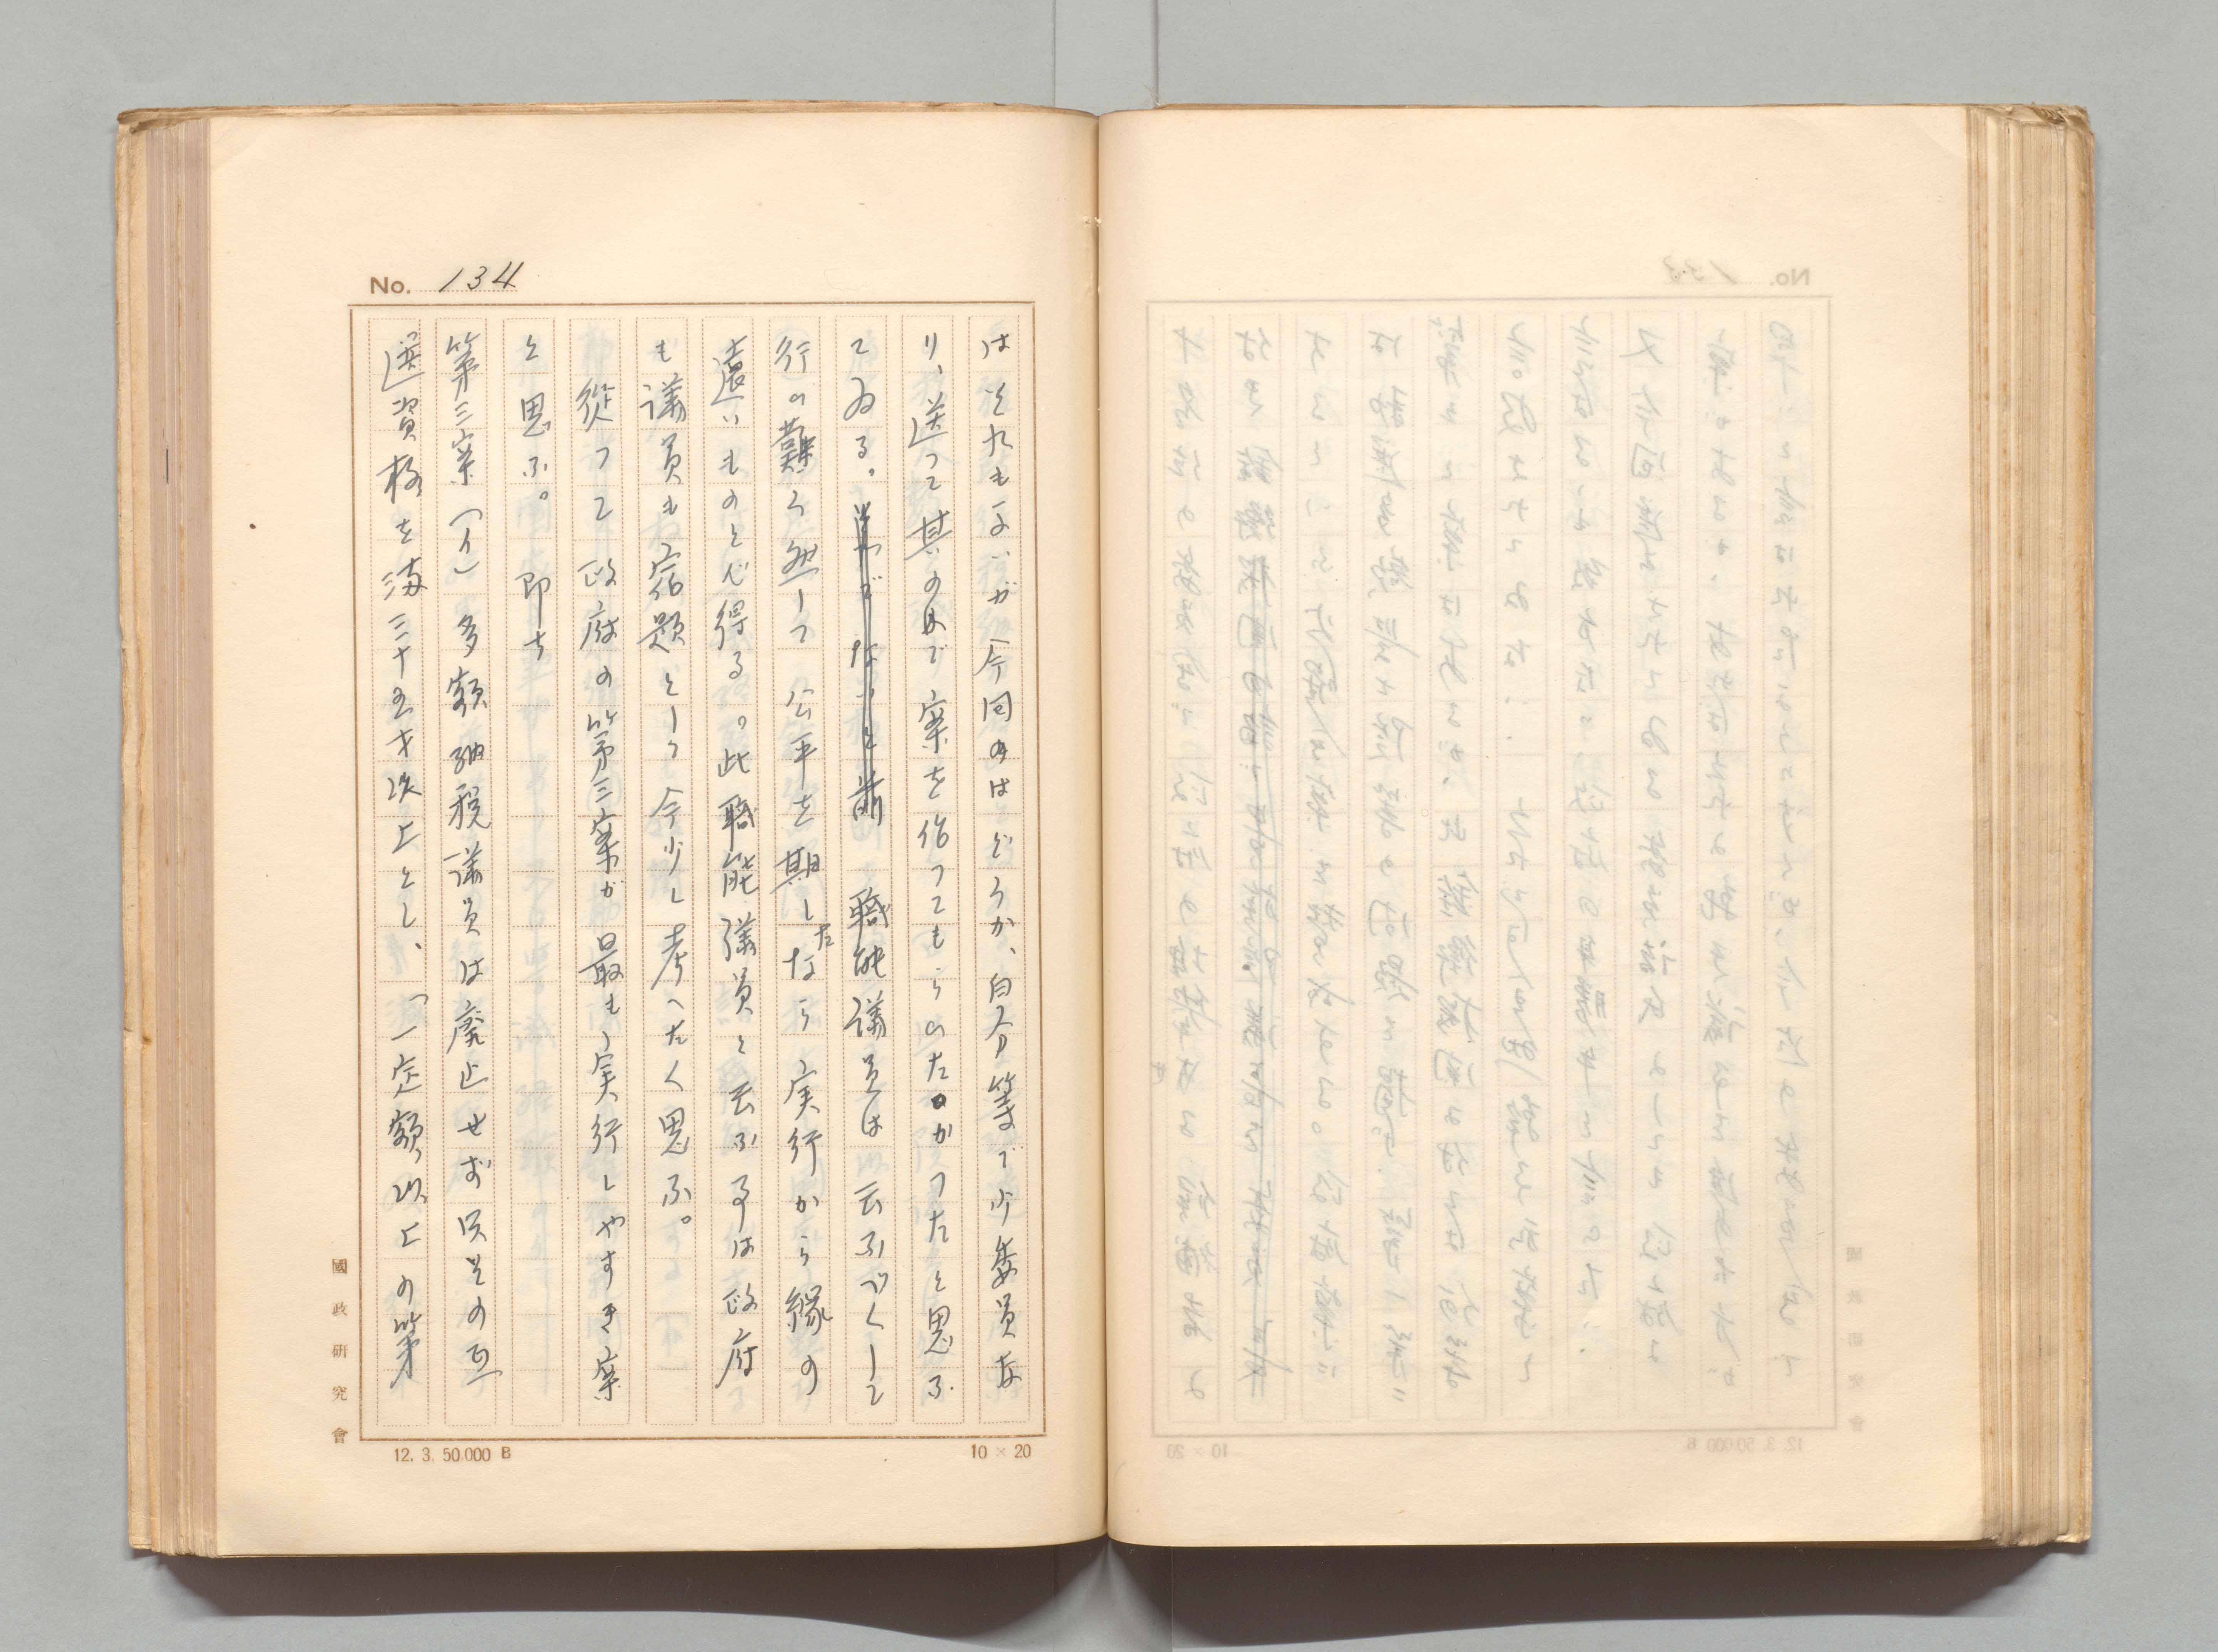 No. 134
はそれもよいが今回のはどうか、自分等で少委員な
り、送って其のまゝで案を作ってもらいたかったと思ふ
てゐる。単でないと前職能議員は云ふべくして
行い難く然して公平を期したなら実行から縁の
遠いものと心得る。此職能議員と云ふ事は政府
も議員も宿題として今少し考へたく思ふ。
従って政府の第三案が最も実行しやすき案
と思ふ。即ち
第三案(イ)多額納税議員は廃止せず只その互
選資格を満三十五才以上とし、「一定額以上の第
國政研究會
12. 3. 50.000 B
10×20